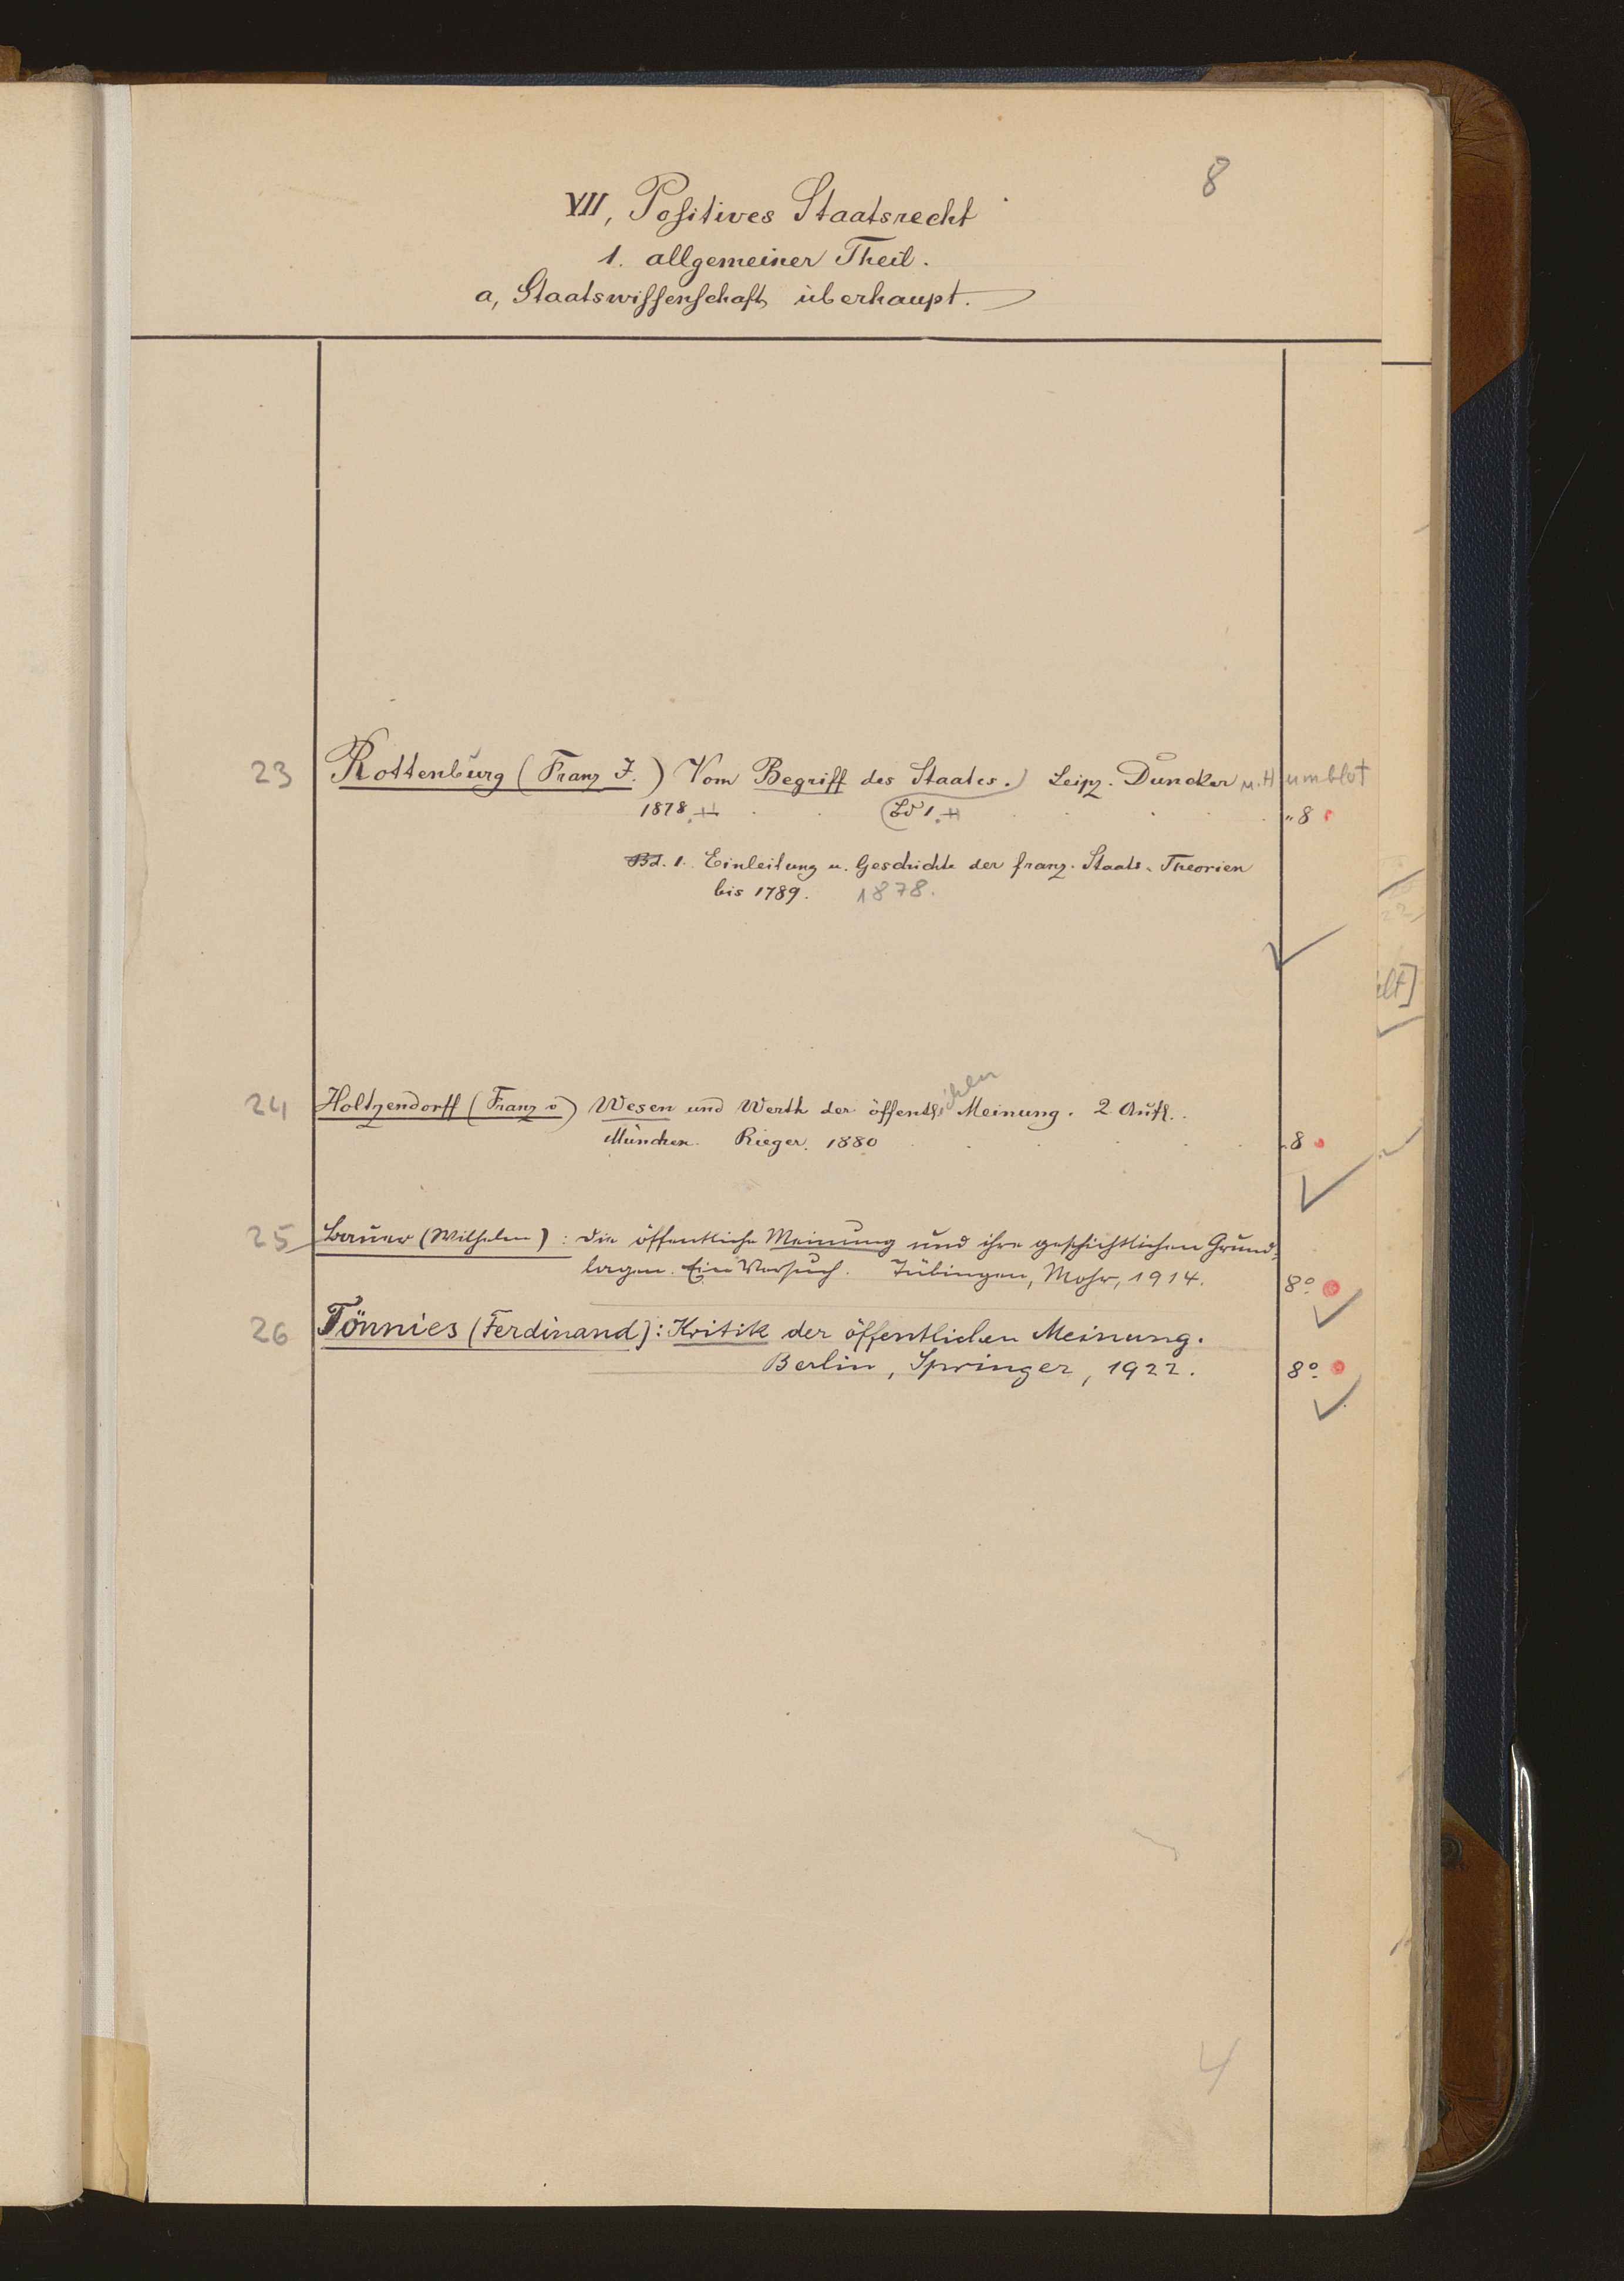 8
VII, Positives Staatsrecht
1. allgemeiner Theil.
a, Staatswissenschaft überhaupt.
23 Rottenburg (Franz J.) Vom Begriff des Staates. Leipz. Duncker u. Humblot
1878. Bd 1. 8
Bd. 1. Einleitung u. Geschichte der franz. Staats-Theorien
bis 1789. 1878.
24 Holtzendorff (Franz v) Wesen und Werth der öffentlichen Meinung. 2 Aufl.
München. Rieger. 1880 8
25 Bauer (Wilhelm): Die öffentliche Meinung und ihre geschichtlichen Grund-
lagen. Ein Versuch. Tübingen, Mohr, 1914. 8°
26 Tönnies (Ferdinand): Kritik der öffentlichen Meinung.
Berlin, Springer, 1922. 8°
4